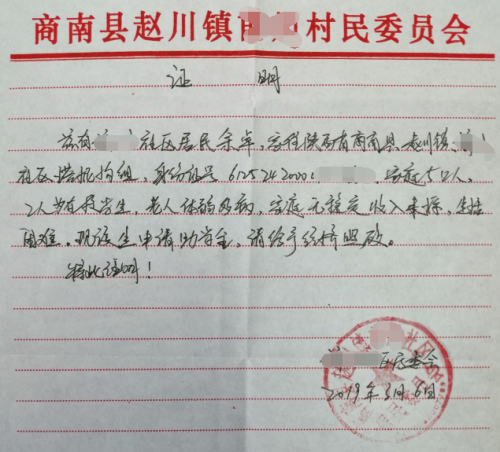 商南县赵川镇 村民委员会
证 明
兹有 社区居民余年,家住陕西省商南县赵川镇
社区 组,身份证号 612524200 ,家庭5口人。
2人 学生,老人体弱多病,家庭无稳定收入来源,生活
困难。现该生申请助学金,请给予 照顾。
特此证明!
居委会
2019年3月6日